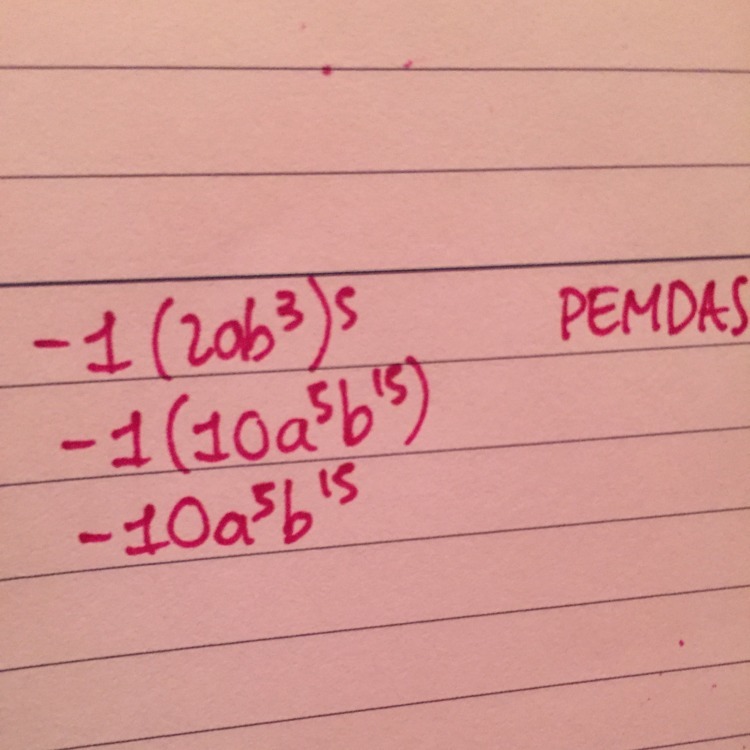 -1(2ab³)⁵ PEMDAS
-1(10a⁵b¹⁵)
-10a⁵b¹⁵